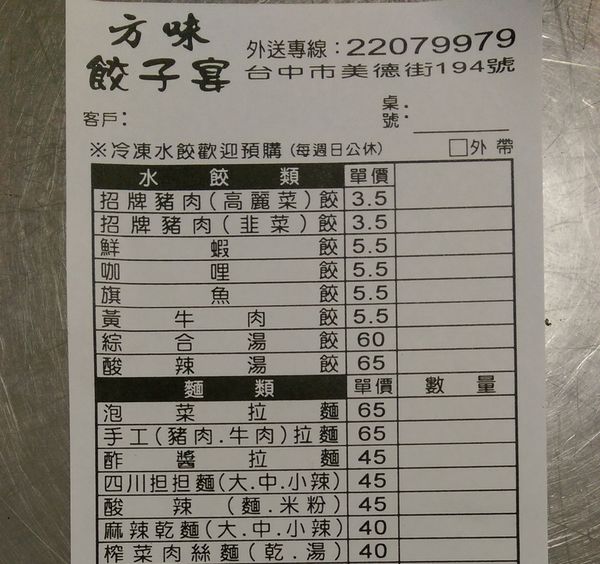 方味
餃子宴
外送專線：22079979
台中市美德街194號
客戶：
桌號：
※冷凍水餃歡迎預購（每週日公休） □外帶
水餃類 單價
招牌豬肉（高麗菜）餃 3.5
招牌豬肉（韭菜）餃 3.5
鮮蝦餃 5.5
咖哩餃 5.5
旗魚餃 5.5
黃牛肉餃 5.5
綜合湯餃 60
酸辣湯餃 65
麵類 單價 數量
泡菜拉麵 65
手工（豬肉.牛肉）拉麵 65
酢醬拉麵 45
四川担担麵（大.中.小辣） 45
酸辣（麵.米粉） 45
麻辣乾麵（大.中.小辣） 40
榨菜肉絲麵（乾.湯） 40